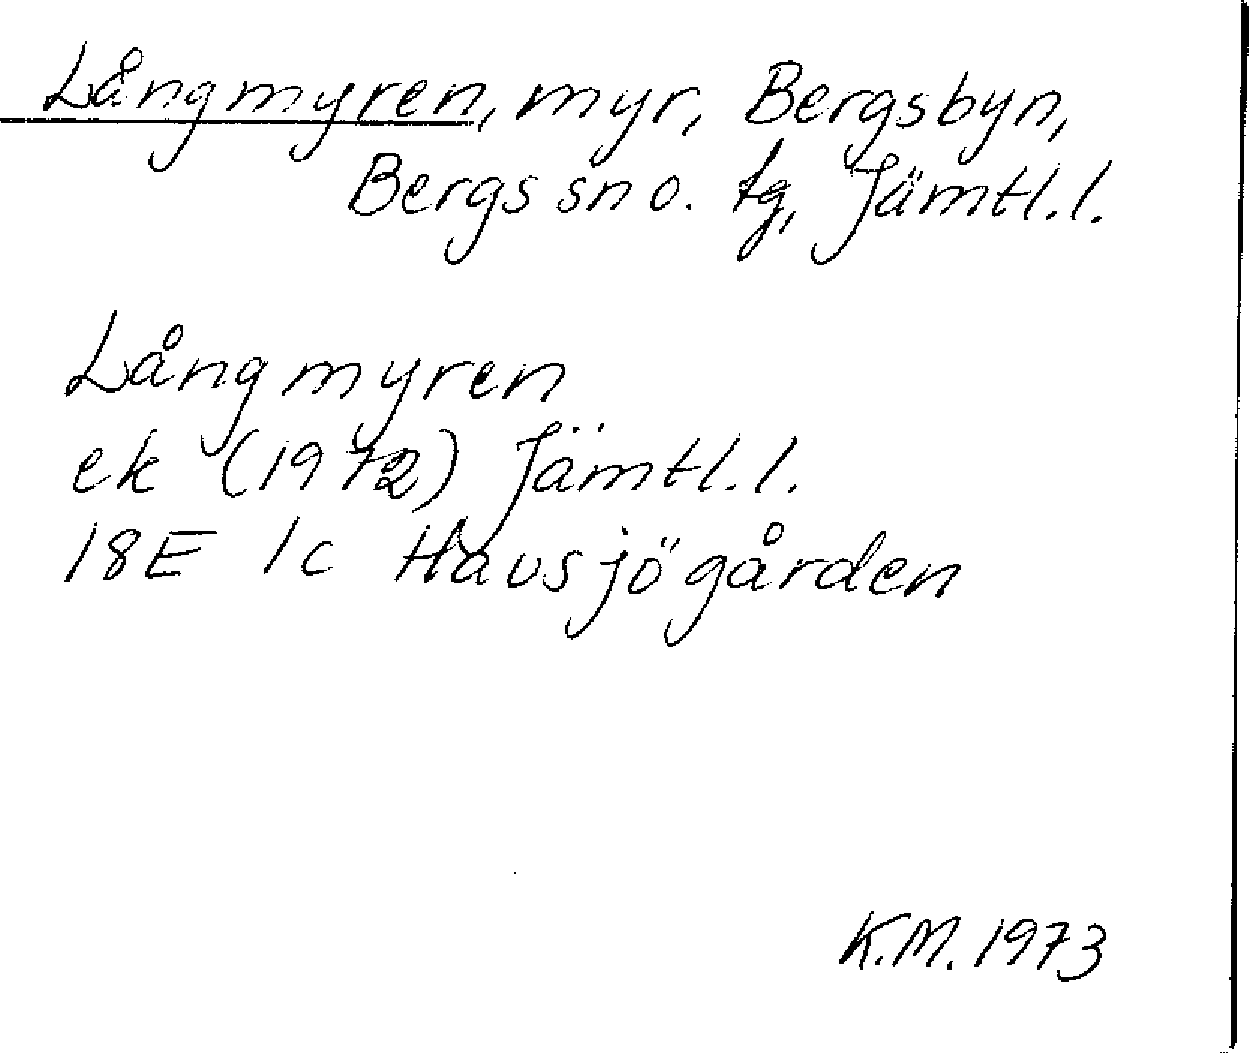 Långmyren, myr, Bergsbyn,
Bergs sn o. tg, Jämtl. l.
Långmyren
ek (1972) Jämtl. l.
18E 1c Havsjögården
K.M. 1973